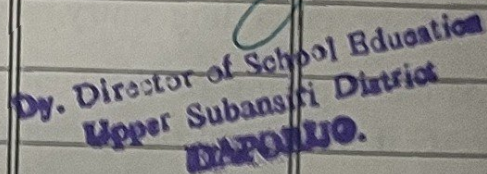 Dy. Director of School Education
Upper Subansiri District
DAPORIJO.